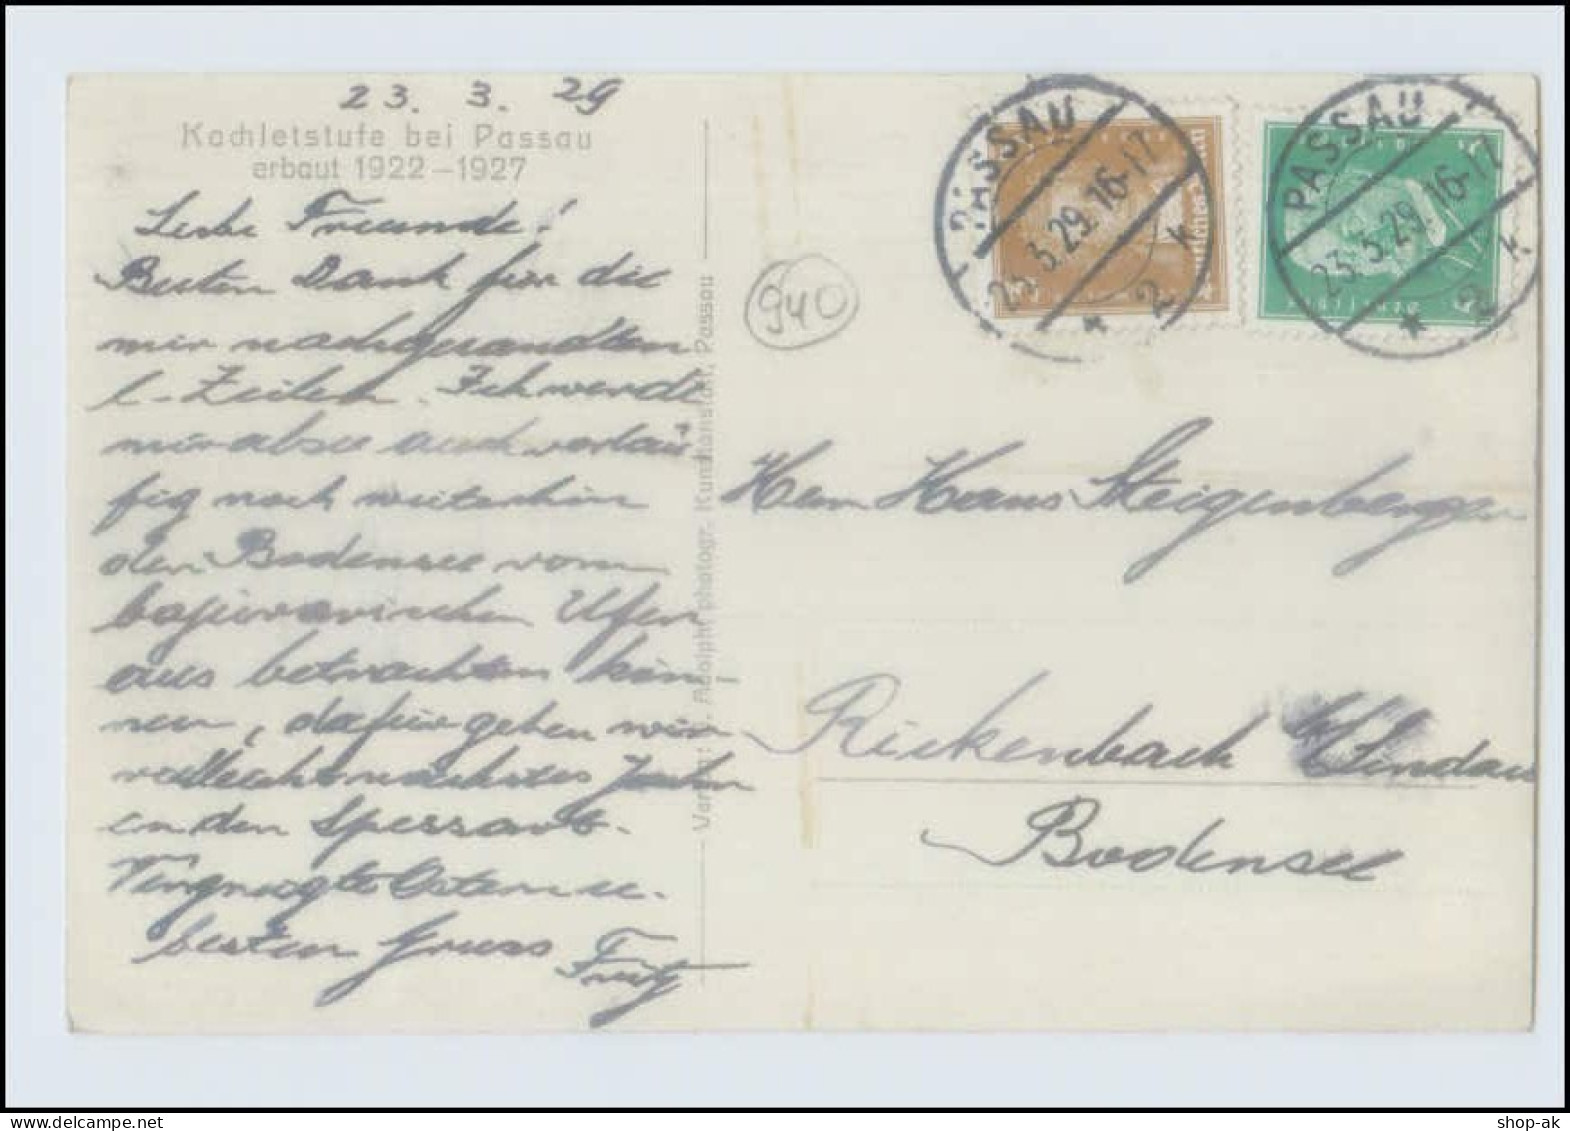 23. 3. 29
Kachletstufe bei Passau
erbaut 1922-1927
Liebe Freunde!
Besten Dank für die
mir nachgesandten
l. Zeilen. Ich werde
mir also auch vorläu
fig noch weiterhin
den Bodensee vom
bayuwarischen Ufer
aus betrachten kön-
nen, dafür gehen wir
vielleicht nächstes Jahr
in den Spessart.
Vergnügte Ostern u.
besten Gruss
Fritz
Adolph photogr. Kunstanstalt, Passau
940
PASSAU
23.3.29.16-17
* 2 k
PASSAU
23.3.29.16-17
* 2 k
Herrn Hans Steigenberger
Rickenbach b/Lindau
Bodensee
shop-ak